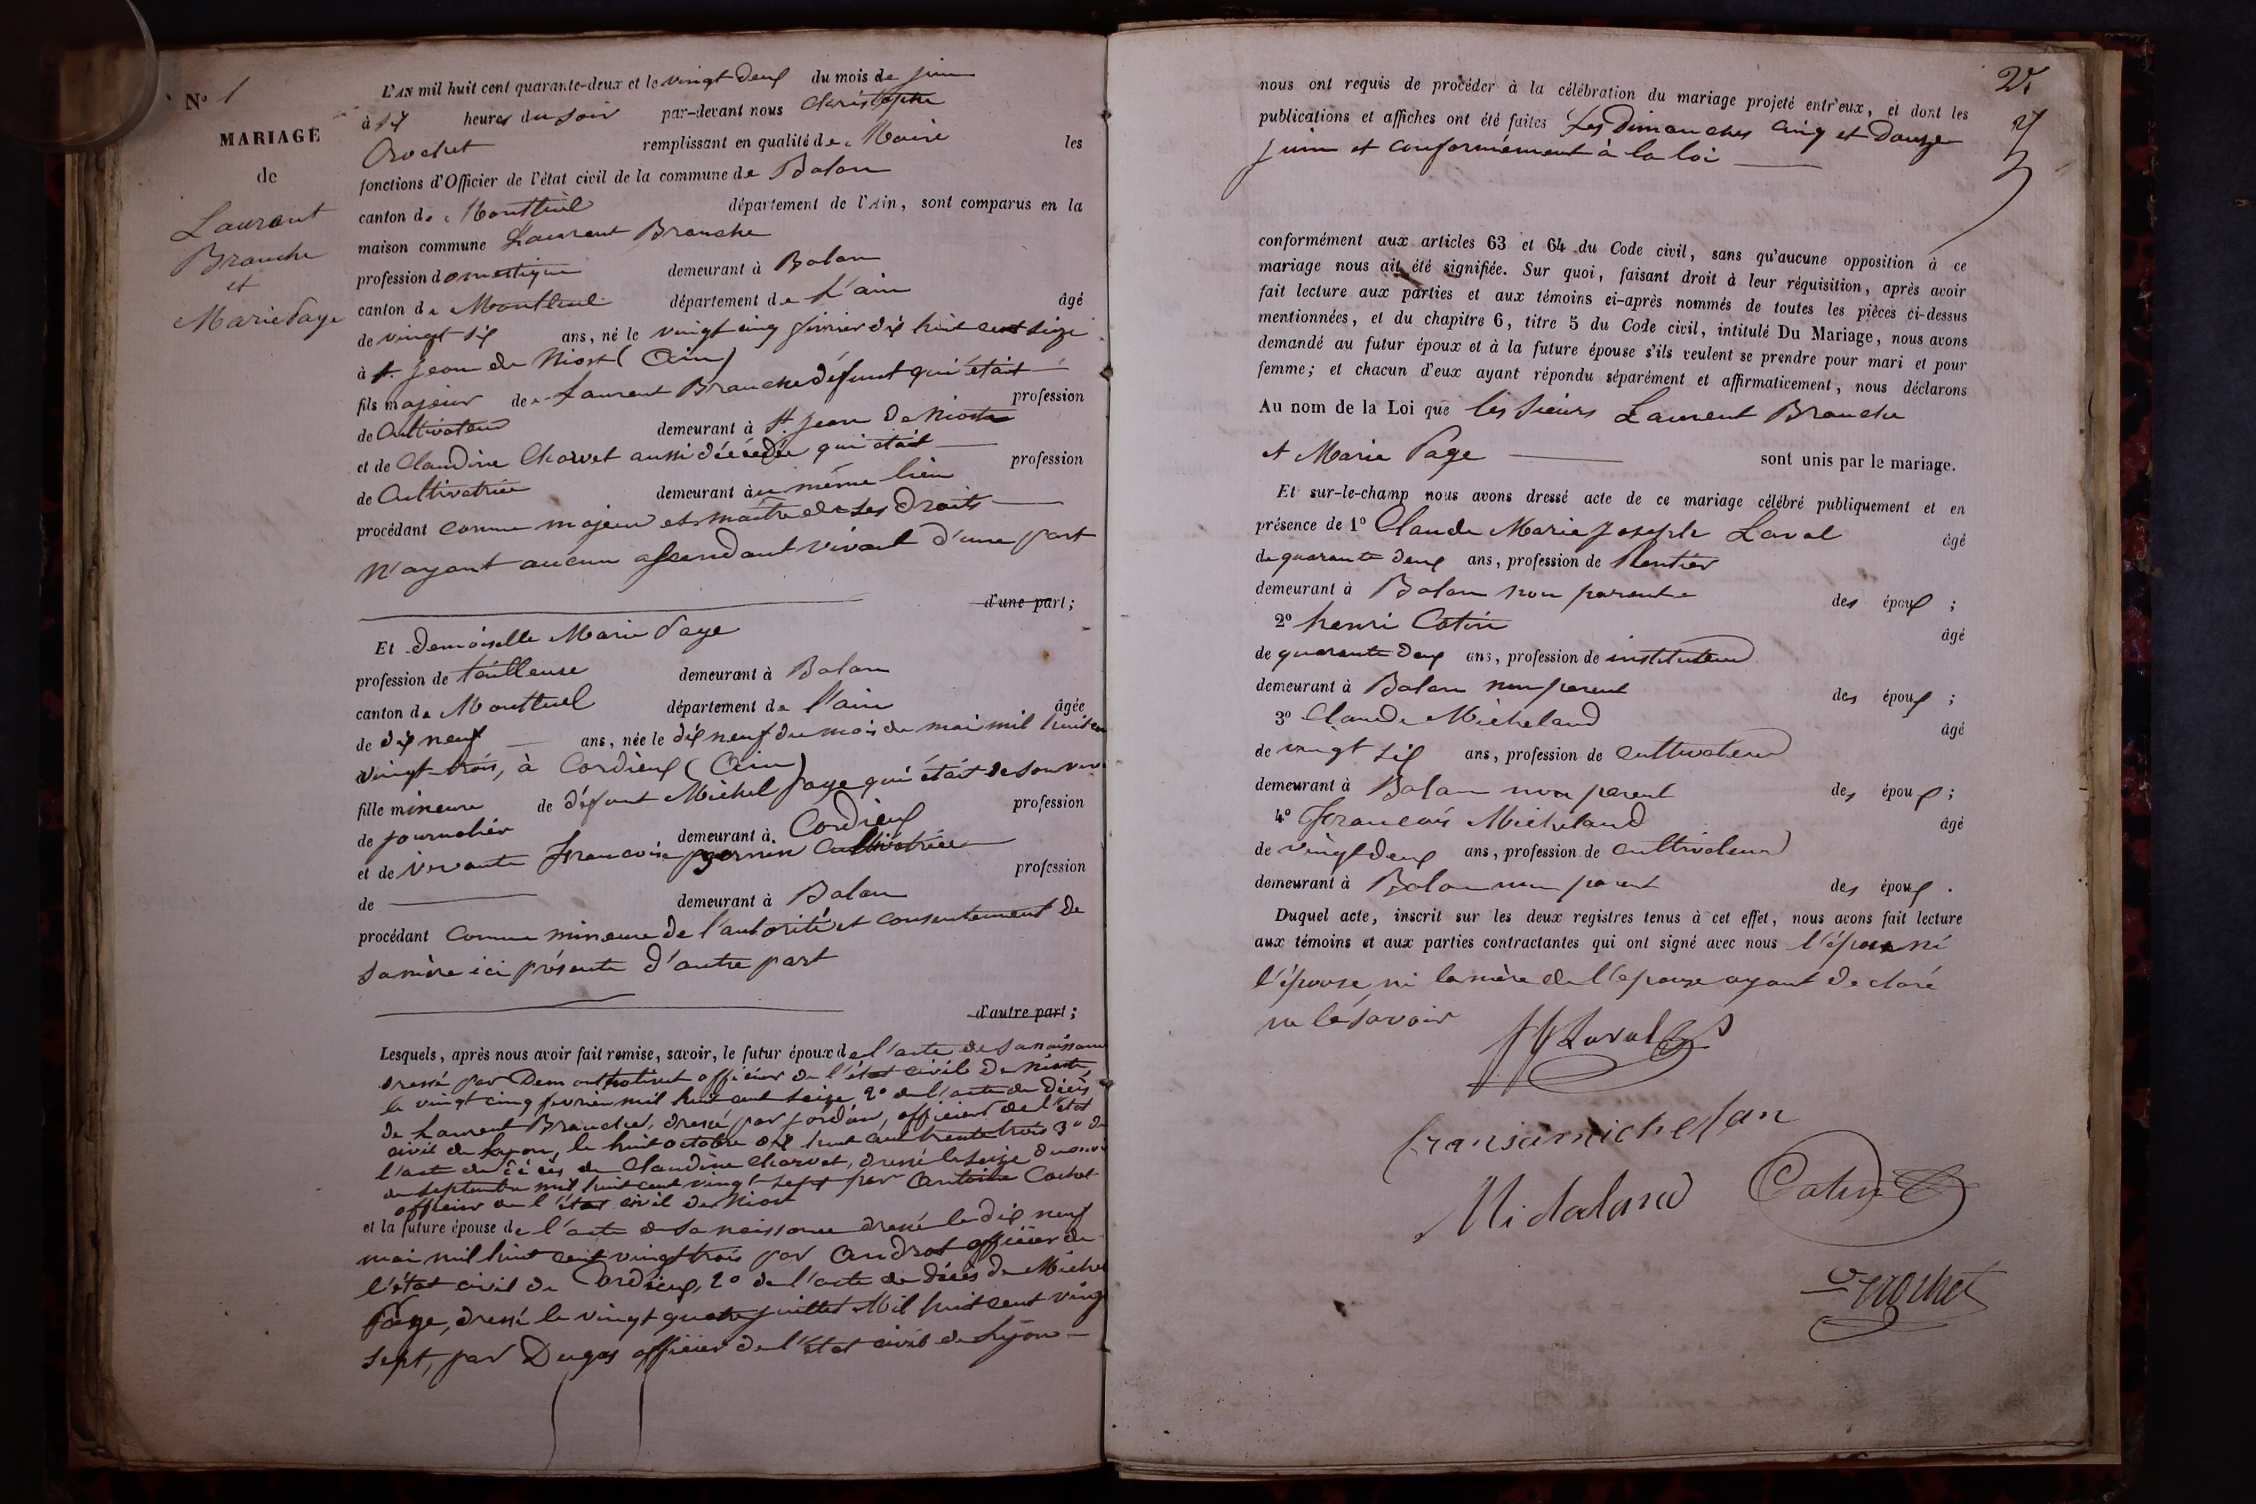 N° 1
MARIAGE
de
Laurent
Branche
et
Marie Page
L'AN mil huit cent quarante-deux et le vingt deux du mois de juin
à six heures du soir par-devant nous Christophe
Crochet remplissant en qualité de Maire les
fonctions d'Officier de l'état civil de la commune de Balan
canton de Montluel département de l'Ain, sont comparus en la
maison commune Laurent Branche
profession domestique demeurant à Balan
canton de Montluel département de L'ain âgé
de vingt six ans, né le vingt cinq fevrier dix huit cent seize
à St. Jean de Niost (Ain)
fils majeur de Laurent Branche défunt qui était profession
de Cultivateur demeurant à St. Jean de Niost
et de Claudine Charvet aussi décédée qui était profession
de Cultivatrice demeurant au même lieu
procédant comme majeur et maître de ses droits
n'ayant aucun assendant vivant d'une part
d'une part;
Et Demoiselle Marie Page
profession de tailleuse demeurant à Balan
canton de Montluel département de l'ain âgée
de dix neuf ans, née le dix neuf du mois de mai mil huit cent
vingt-trois, à Cordieux (Ain)
fille mineure de défunt Michel page qui était de son vivant profession
de journalier demeurant à Cordieux
et de vivante francoise Cultivatrice profession
de demeurant à Balan
procédant comme mineure de l'autorité et consentement de
sa mère ici présente d'autre part
d'autre part;
Lesquels, après nous avoir fait remise, savoir, le futur époux de l'acte de sa naissance
dressé par officier de l'état civil de Niost,
le vingt cinq fevrier mil huit cent seize, 2° de l'acte de décès
de Laurent Branche, dressé par Jordan, officier de l'état
civil de Lyon, le huit octobre dix huit cent trente trois 3° de
l'acte de décès de Claudine Charvet, dressé le seize du mois
de septembre mil huit cent vingt sept par Antoine Cochet
officier de l'état civil de Niost
et la future épouse de l'acte de sa naissance dressé le dix neuf
mai mil huit cent vingt trois par Androt officier de
l'état civil de Cordieux, 2° de l'acte de décès de Michel
Page, dressé le vingt quatre juillet Mil huit cent vingt
sept, par Dugas officier de l'état civil de Lyon
nous ont requis de procéder à la célébration du mariage projeté entr'eux, et dont les
publications et affiches ont été faites Les Dimanches cinq et Douze
juin et conformément à la loi
conformément aux articles 63 et 64 du Code civil, sans qu'aucune opposition à ce
mariage nous ait été signifiée. Sur quoi, faisant droit à leur réquisition, après avoir
fait lecture aux parties et aux témoins ci-après nommés de toutes les pièces ci-dessus
mentionnées, et du chapitre 6, titre 5 du Code civil, intitulé Du Mariage, nous avons
demandé au futur époux et à la future épouse s'ils veulent se prendre pour mari et pour
femme; et chacun d'eux ayant répondu séparément et affirmativement, nous déclarons
Au nom de la Loi que les sieurs Laurent Branche
et Marie Page sont unis par le mariage.
Et sur-le-champ nous avons dressé acte de ce mariage célébré publiquement et en
présence de 1° Claude Marie Joseph Laval âgé
de quarante deux ans, profession de Rentier
demeurant à Balan non parent des époux ;
2° henri Cotin âgé
de quarante deux ans, profession de instituteur
demeurant à Balan non parent des époux ;
3° Claude Micheland âgé
de vingt six ans, profession de cultivateur
demeurant à Balan non parent des époux ;
4° francois Micheland âgé
de vingt deux ans, profession de cultivateur
demeurant à Balan non parent des époux .
Duquel acte, inscrit sur les deux registres tenus à cet effet, nous avons fait lecture
aux témoins et aux parties contractantes qui ont signé avec nous l'époux ni
l'épouse, ni la mère de l'épouse ayant declaré
ne le savoir
Laval
Crochet